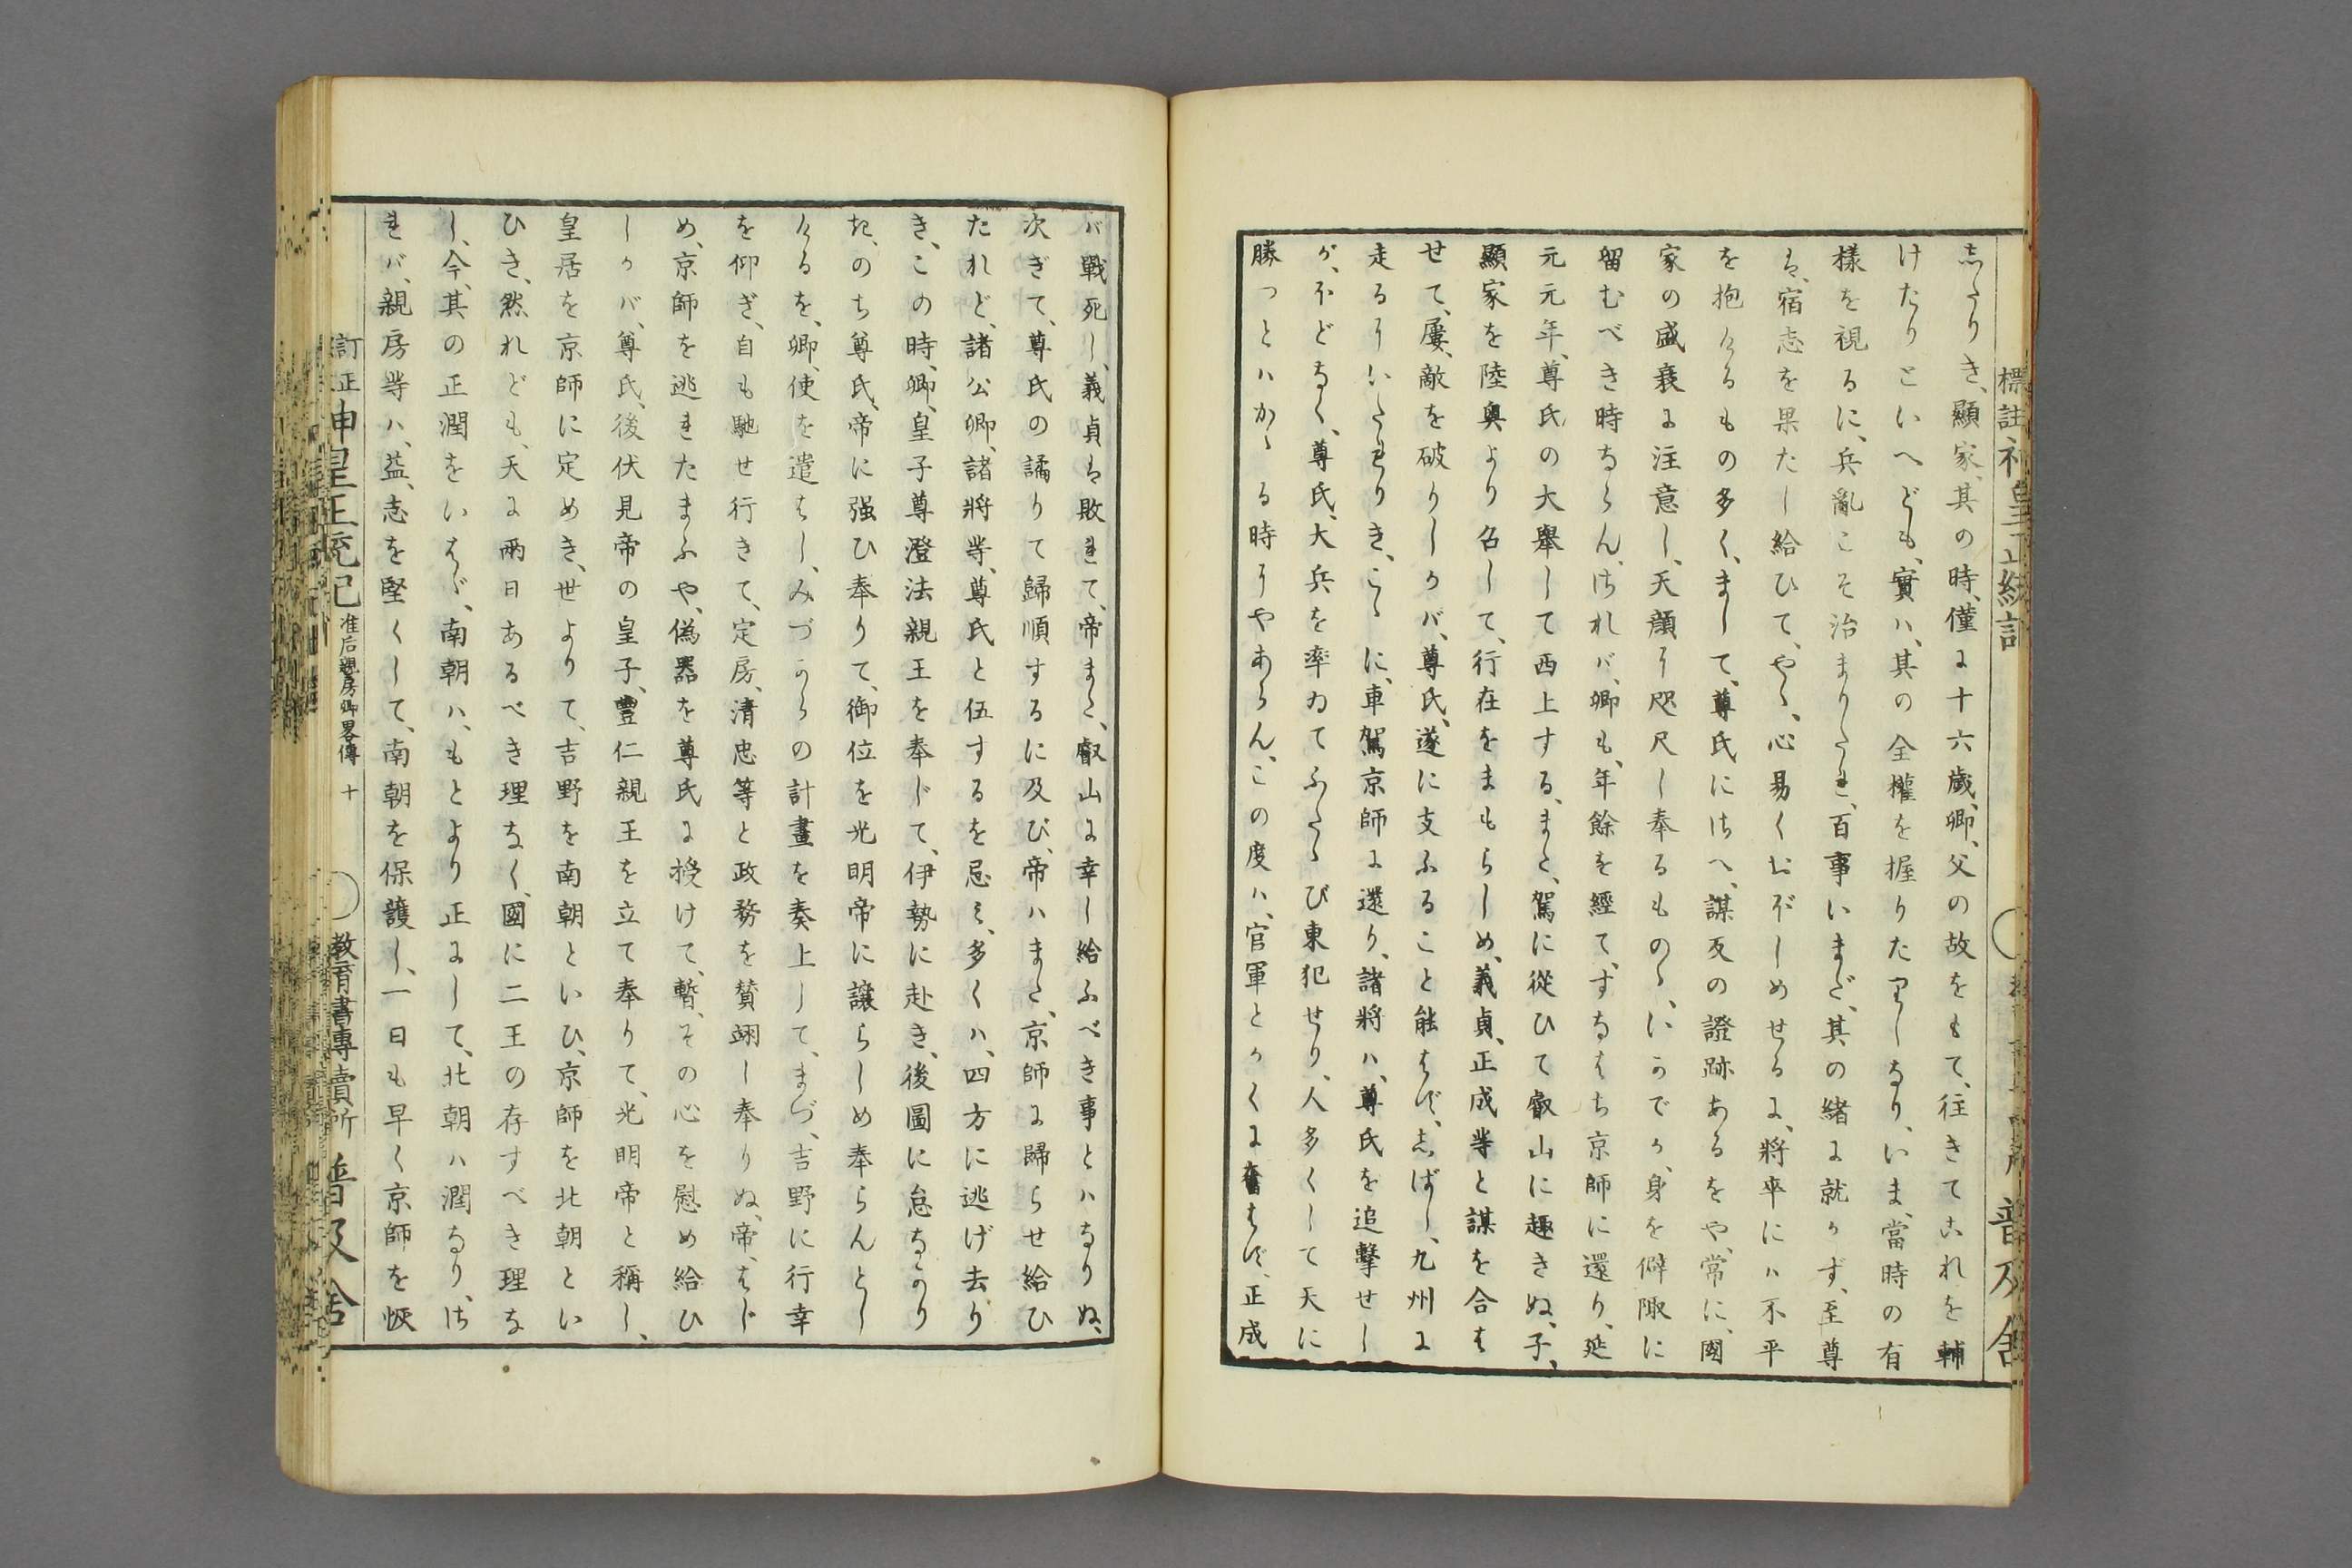 標註神皇正統記
普及舍
志たりき、顯家、其の時、僅に十六歲、卿、父の故をもて、往きてこれを輔
けたりといへども、實ハ、其の全權を握りたりしなり、いま、當時の有
樣を視るに、兵亂こそ治まりたれ、百事いまだ、其の緒に就かず、至尊
は、宿志を果たし給ひて、やゝ、心易くおぼしめせるに、將卒にハ不平
を抱けるもの多く、まして、尊氏にさへ、謀反の證跡あるをや、常に、國
家の盛衰に注意し、天顏に咫尺し奉るもの、いかでか、身を僻陬に
留むべき時ならん、されバ、卿も、年餘を經て、すなはち京師に還り、延
元元年、尊氏の大擧して西上する、また、駕に從ひて叡山に趣きぬ、子、
顯家を陸奧より召して、行在をまもらしめ、義貞、正成等と謀を合は
せて、屢、敵を破りしかバ、尊氏、遂に支ふること能はず、志ばし、九州に
走るにいたれりき、こゝに、車駕京師に還り、諸將ハ、尊氏を追擊せし
が、ほどなく、尊氏、大兵を率ゐてふたゝび東犯せり、人多くして天に
勝つとハかゝる時にやあらん、この度ハ、官軍とかくに奮はず、正成
バ戰死し、義貞は敗れて、帝また、叡山に幸し給ふべき事とハなりぬ、
次ぎて、尊氏の譎りて歸順するに及び、帝ハまた、京師に歸らせ給ひ
たれど、諸公卿、諸將等、尊氏と伍するを忌み、多くハ、四方に逃げ去り
き、この時、卿、皇子尊澄法親王を奉じて、伊勢に赴き、後圖に怠なかり
き、のち尊氏、帝に强ひ奉りて、御位を光明帝に讓らしめ奉らんとし
けるを、卿、使を遣はし、みづからの計畫を奏上して、まづ、吉野に行幸
を仰ぎ、自も馳せ行きて、定房、淸忠等と政務を贊翊し奉りぬ、帝、はじ
め、京師を逃れたまふや、僞器を尊氏に授けて、暫、その心を慰め給ひ
しかバ、尊氏、後伏見帝の皇子、豐仁親王を立て奉りて、光明帝と稱し、
皇居を京師に定めき、世よりて、吉野を南朝といひ、京師を北朝とい
ひき、然れども、天に兩日あるべき理なく、國に二王の存すべき理な
し、今、其の正潤をいはゞ、南朝ハ、もとより正にして、北朝ハ潤なり、さ
れバ、親房等ハ、益、志を堅くして、南朝を保護し、一日も早く京師を恢
訂正神皇正統記 准后親房卿畧傳 十
教育書專賣所 普及舍